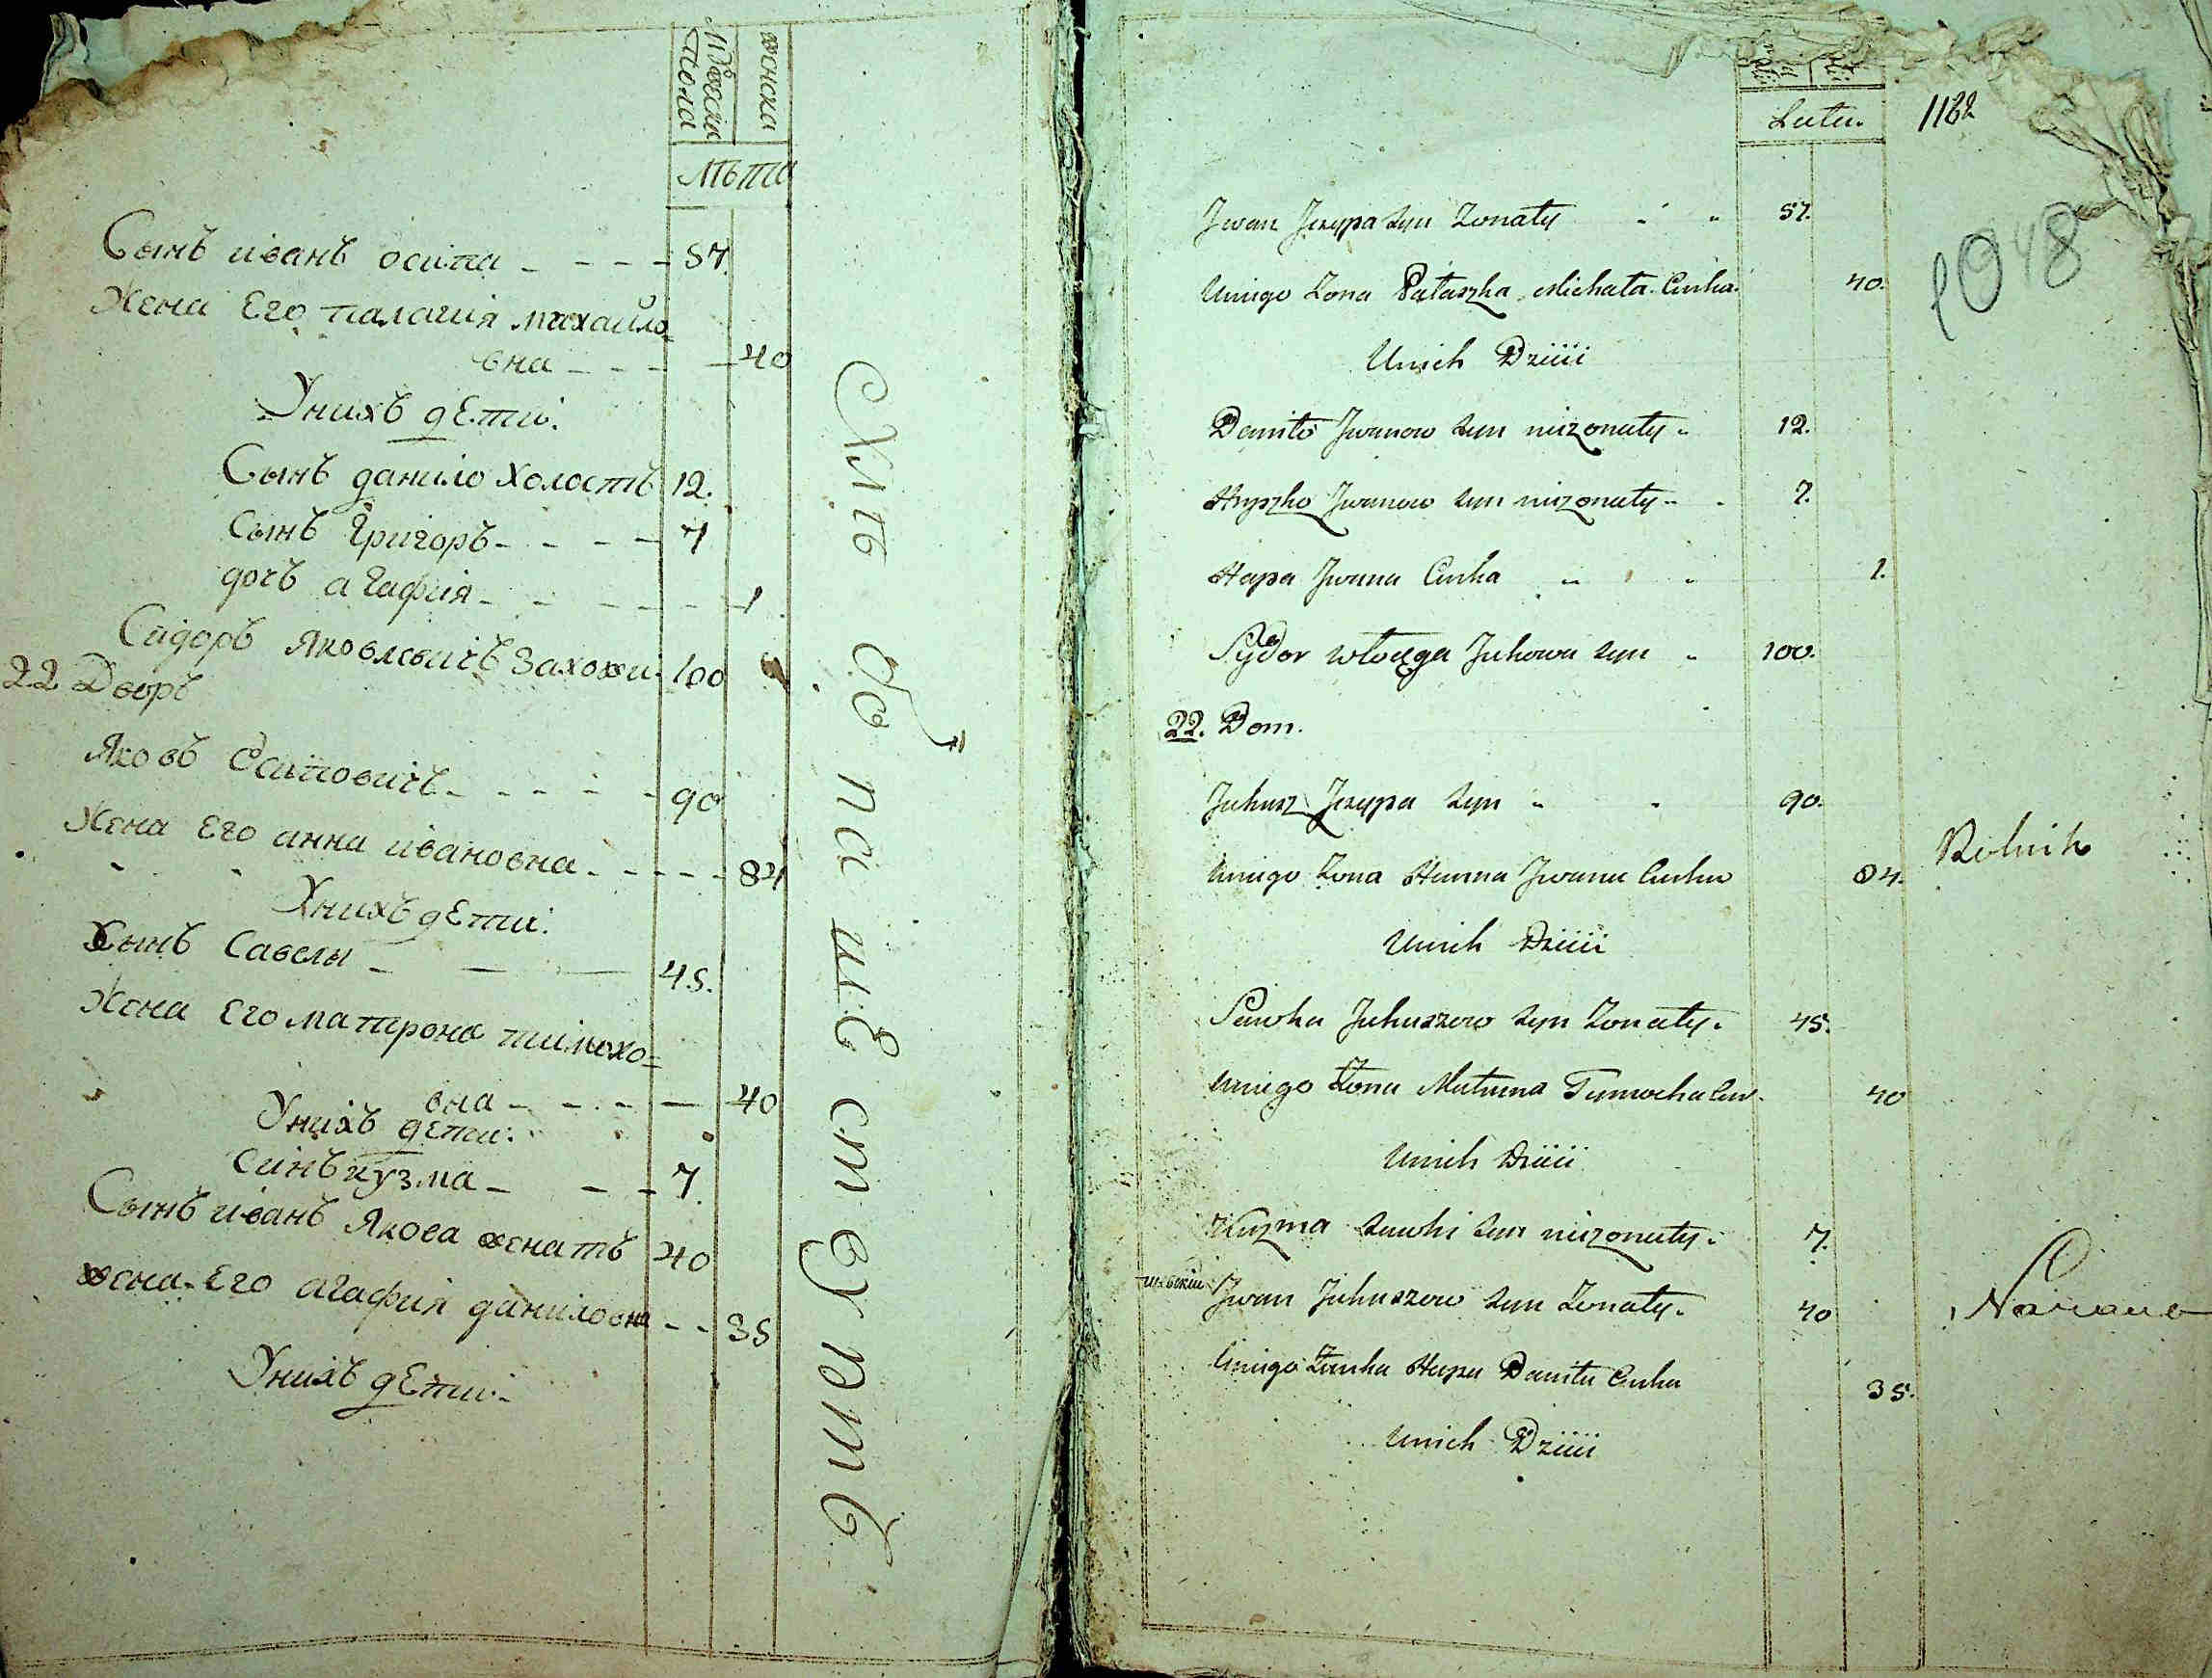 мужеска
пола
женска
лѣта
Сынъ иванъ осипа - - - - 57.
Жена Его палагия михайло
вна - - - 40
Унихъ дЕти:
Сынъ данило Холостъ 12.
Сынъ Григоръ - - - - 7
дочъ агафия - - - - - - 1
Сидоръ Яковлевичъ Захожи. 100
22 Дворъ
Яковъ Осиповичъ - - - - - 90
Жена Его анна ивановна - - - - - 84
Унихъ дЕти:
Сынъ Савелы - - - 45.
Жена Его матрона тимохо=
вна - - - - - 40
Унихъ дЕти:
Синъ кузма - - - 7.
Сынъ иванъ Якова женатъ 40
жена Его агафия даниловна - - 35
Унихъ дЕти:
Latu.
1162
1048
Jwan Jezypa syn Zonaty 57.
Uniego Zona Pałaszka Michała Curka. 40.
Unich Dzieii
Daniło Jwanow syn niezonaty 12.
Hryszko Jwanow syn niezonaty 7.
Hapa Jwana Curka 1.
Sydor włoczga Jukowa syn 100.
22. Dom.
Jukusz Jezypa syn 90.
Uniego Zona Hanna Jwana Curka 84.
Rolnik
Unich Dzieii
Sawka Jukuszow syn Zonaty. 45.
Uniego Zona Matruna Tymocha Cur. 40
Unich Dzieii
Kuzma Sawki syn niezonaty. 7.
Jwan Jukuszow syn Zonaty. 40
Uniego Zonka Hapa Daniła Curka 35.
Unich Dzieii